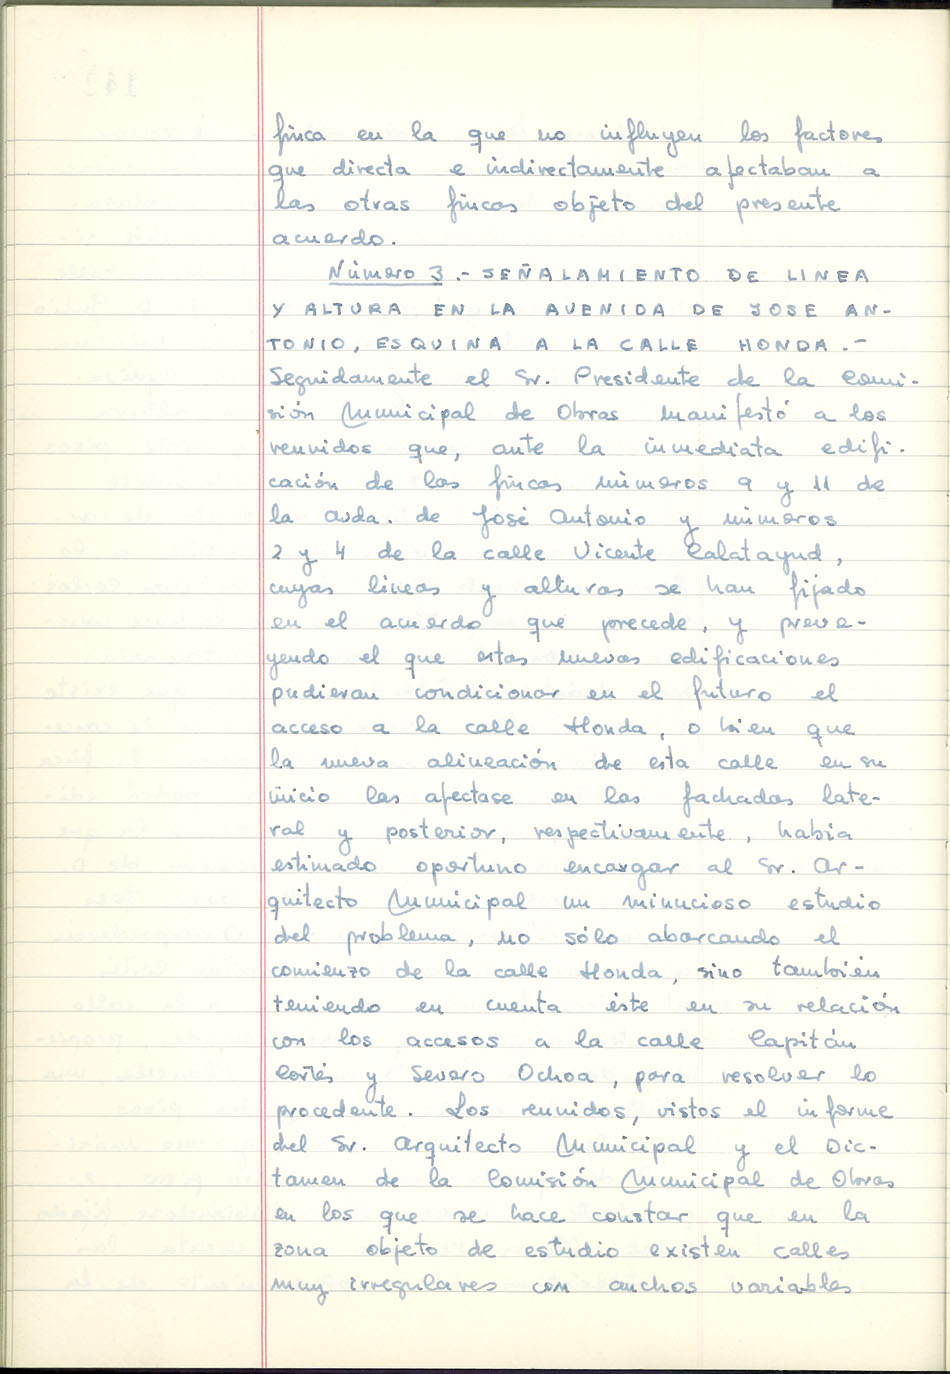 finca en la que no influyen los factores
que directa e indirectamente afectaban a
las otras fincas objeto del presente
acuerdo.
Número 3.- SEÑALAMIENTO DE LINEA
Y ALTURA EN LA AVENIDA DE JOSE AN-
TONIO, ESQUINA A LA CALLE HONDA.-
Seguidamente el Sr. Presidente de la Comi-
sión Municipal de Obras manifestó a los
reunidos que, ante la inmediata edifi-
cación de las fincas números 9 y 11 de
la avda. de José Antonio y números
2 y 4 de la calle Vicente Calatayud,
cuyas líneas y alturas se han fijado
en el acuerdo que precede, y preve-
yendo el que estas nuevas edificaciones
pudieran condicionar en el futuro el
acceso a la calle Honda, o bien que
la nueva alineación de esta calle en su
inicio las afectase en las fachadas late-
ral y posterior, respectivamente, había
estimado oportuno encargar al Sr. Ar-
quitecto Municipal un minucioso estudio
del problema, no sólo abarcando el
comienzo de la calle Honda, sino también
teniendo en cuenta éste en su relación
con los accesos a la calle Capitán
Cortés y Severo Ochoa, para resolver lo
procedente. Los reunidos, vistos el informe
del Sr. Arquitecto Municipal y el Dic-
tamen de la Comisión Municipal de Obras
en los que se hace constar que en la
zona objeto de estudio existen calles
muy irregulares con anchos variables